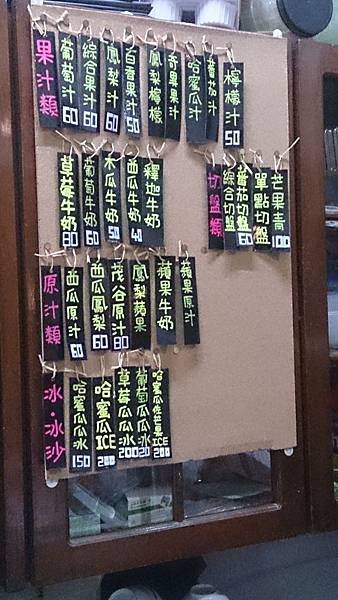 果汁類
葡萄汁 60
綜合果汁 60
鳳梨汁 60
百香果汁 50
鳳梨檸檬
奇異果汁
哈蜜瓜汁
蕃茄汁
檸檬汁 50
草莓牛奶 80
葡萄牛奶 60
木瓜牛奶 50
西瓜牛奶 40
釋迦牛奶
切盤類
綜合切盤
蕃茄切盤 60
單點切盤
芒果青 100
原汁類
西瓜原汁 60
西瓜鳳梨 60
茂谷原汁 80
鳳梨蘋果
蘋果牛奶
蘋果原汁
冰·冰沙
哈蜜瓜瓜冰 150
哈蜜瓜ICE 200
草莓瓜瓜冰 200
葡萄瓜瓜冰
ICE 200